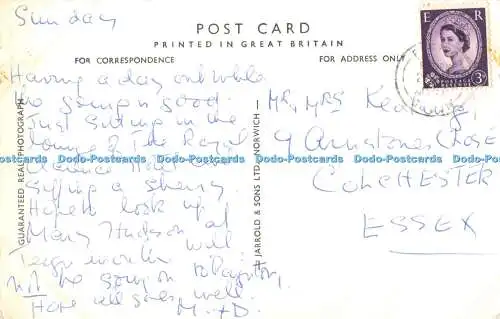 Sunday
POST CARD
PRINTED IN GREAT BRITAIN
FOR CORRESPONDENCE
FOR ADDRESS ONLY
E R
POSTAGE REVENUE
3D
Having a day out while
the going is good.
Just sitting in the
lounge of the Royal
Clarence Hotel
sipping a sherry.
Hope to look up
Mary Hudson at
will
not be going on to
Hope all goes well.
M. + D.
Mr. Mrs
9 Close
COLCHESTER
ESSEX
GUARANTEED REAL PHOTOGRAPH
JARROLD & SONS LTD NORWICH
Dodo-Postcards Dodo-Postcards Dodo-Postcards Dodo-Postcards Dodo-Postcards